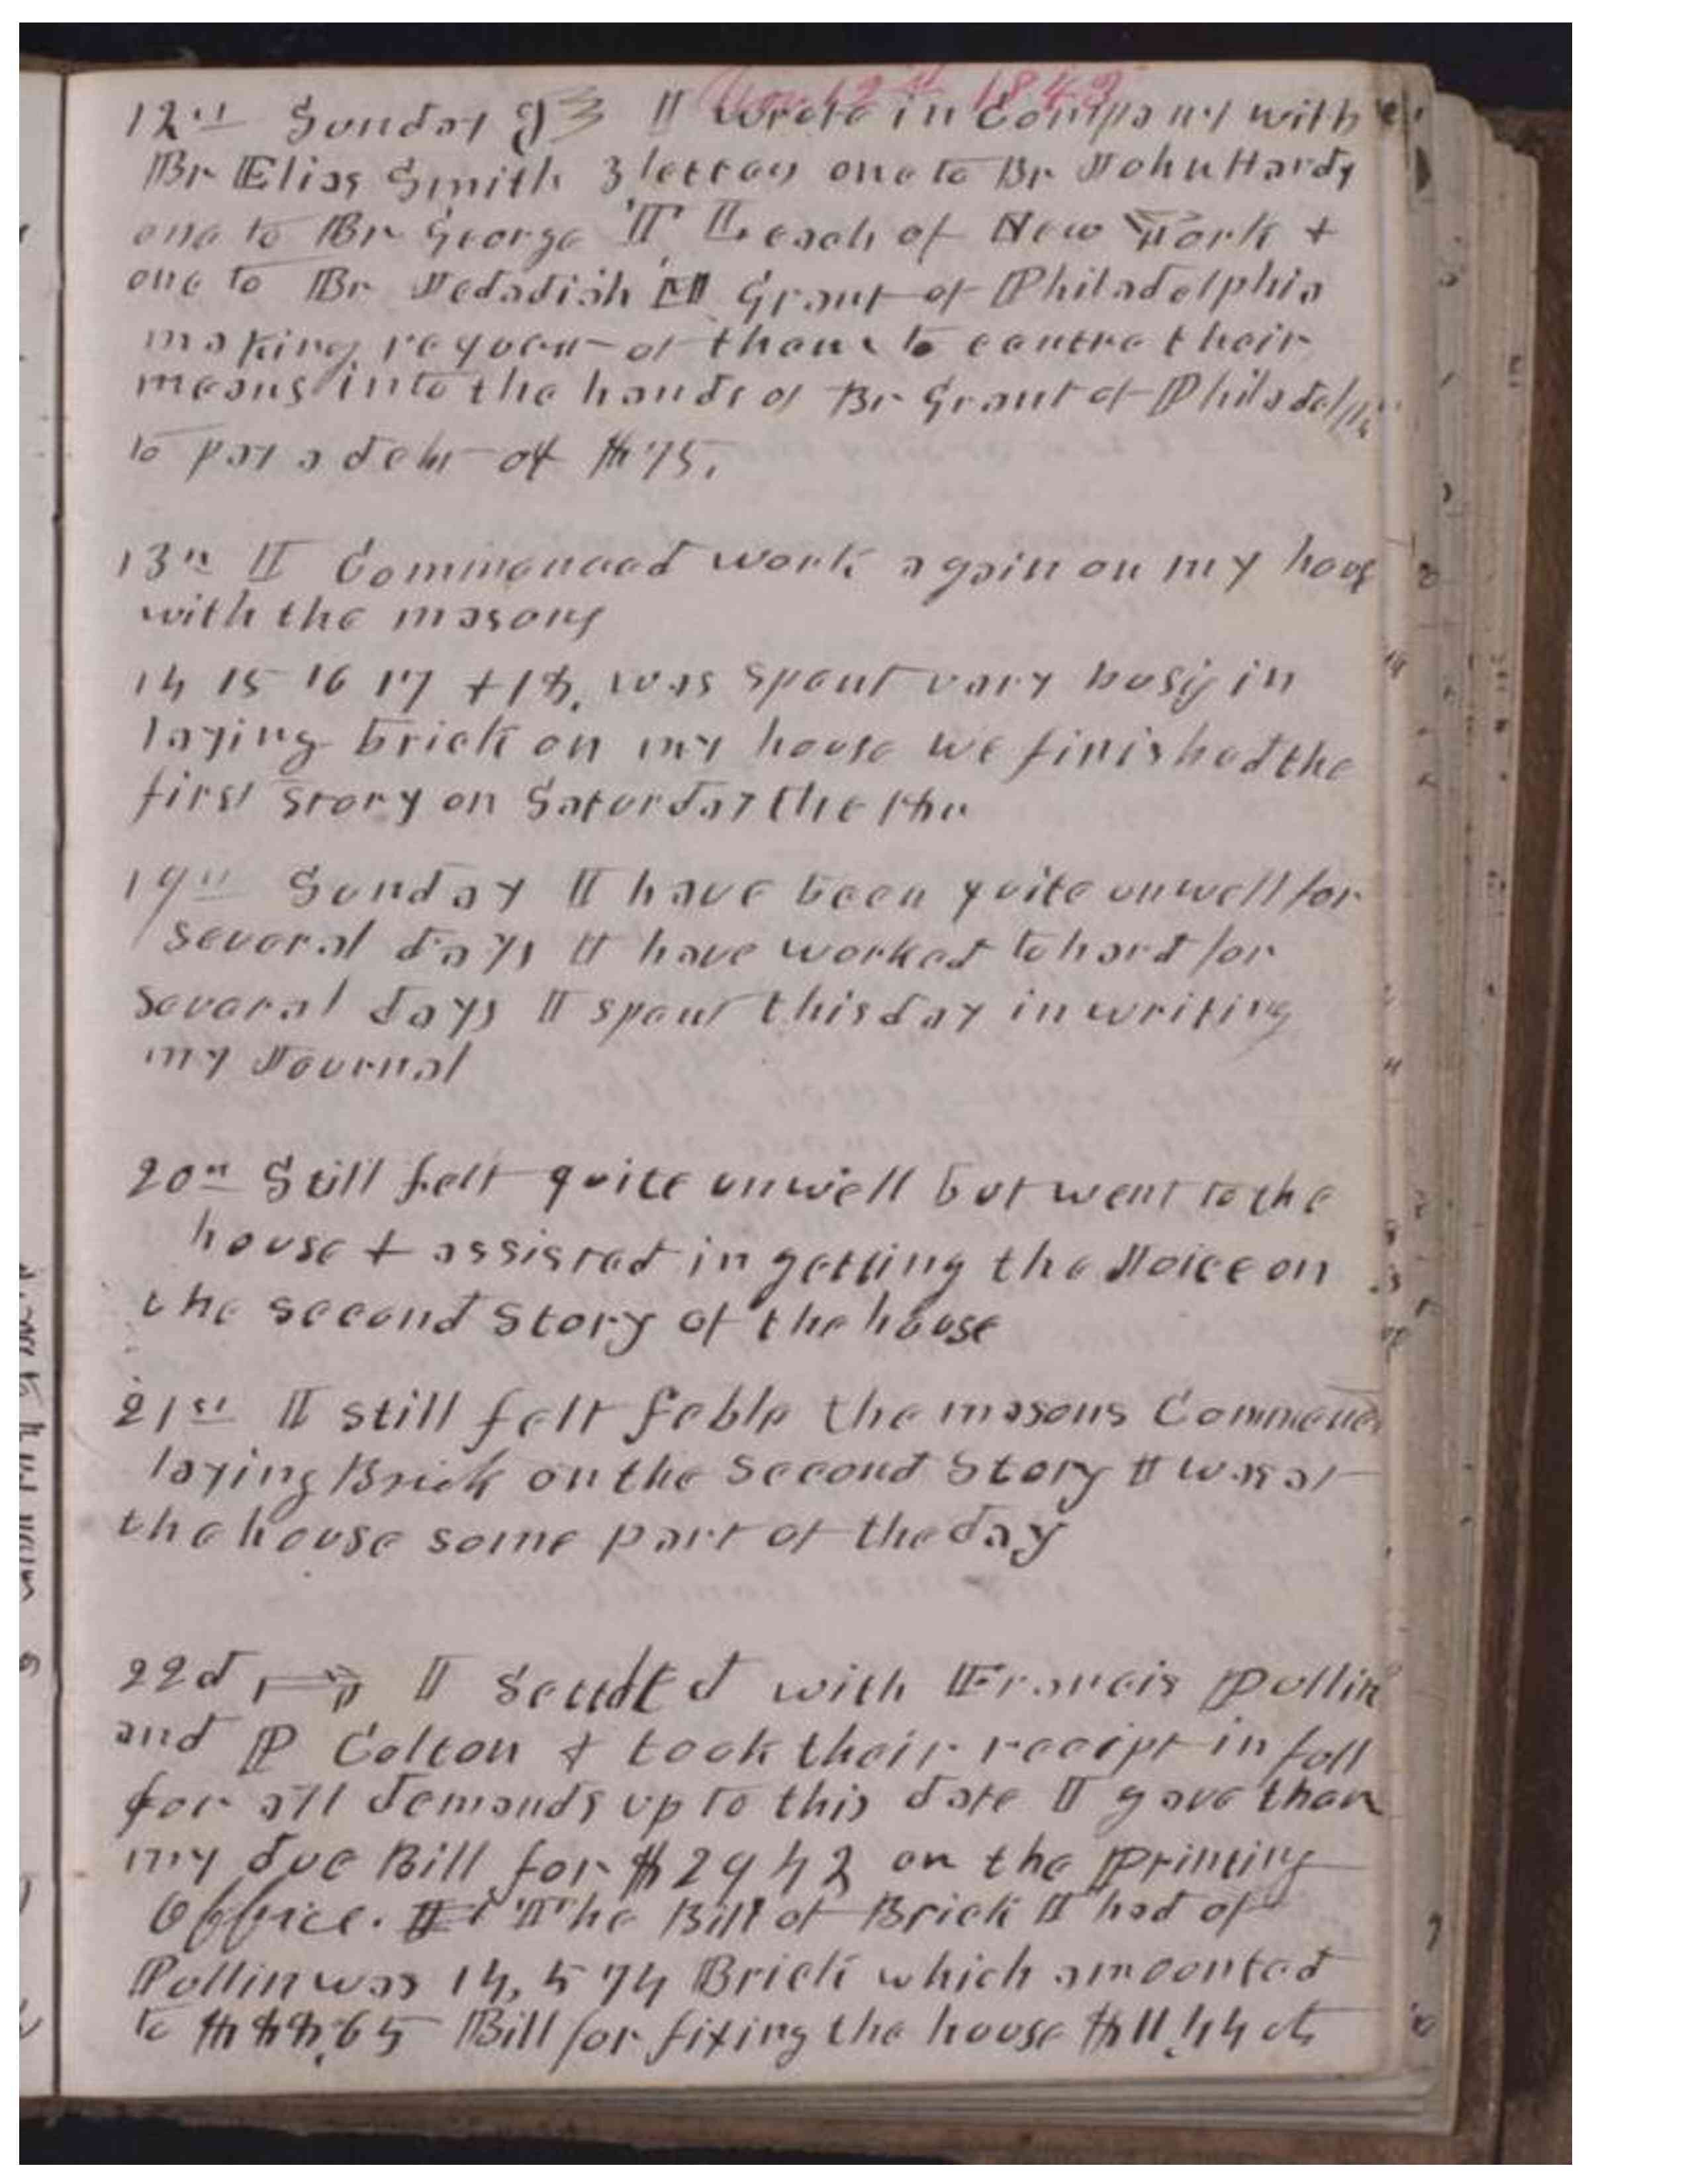 Nov 12th 1843
12th Sunday I wrote in Company with
Br Elias Smith 3 letters one to Br John Hardy
one to Br George T Leach of New York +
one to Br Jedadiah Grant of Philadelphia
making request of them to centre their
means into the hands of Br Grant of Philadelphia
to pay a debt of $75.
13th I Commenced work again on my hous
with the masons
14 15 16 17 + 18, was spent vary busy in
laying brick on my house we finished the
first story on Saturday the 18th
19th Sunday I have been quite unwell for
several days I have worked to hard for
several days I spent this day in writing
my Journal
20th Still felt quite unwell but went to the
house + assisted in getting the Joice on
the second story of the house
21st I still felt feble the masons Commenc
laying Brick on the Second Story I was at
the house some part of the day
22d I Settled with Francis Pullin
and P Colton + took their receipt in full
for all demands up to this date I gave them
my due Bill for $2942 on the printing
Office. The Bill of Brick I had of
Pullin was 14,574 Brick which amounted
to $88,65 Bill for fixing the house $11.44 cts